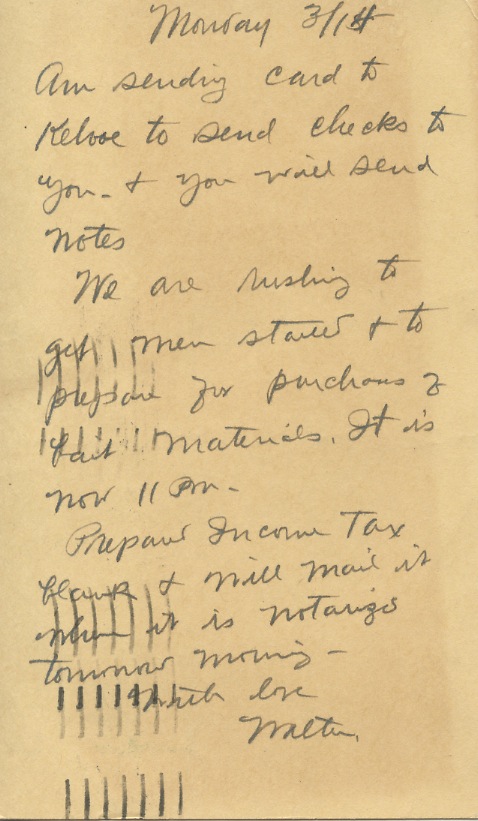 Monday 3/14
Am sending card to
to send checks to
you - & you will send
notes
We are rushing to
get men started & to
prepare for purchase of
materials. It is
now 11 Pm -
Prepared Income Tax
blank & will mail it
when it is notarized
tomorrow morning -
With love
Walter.